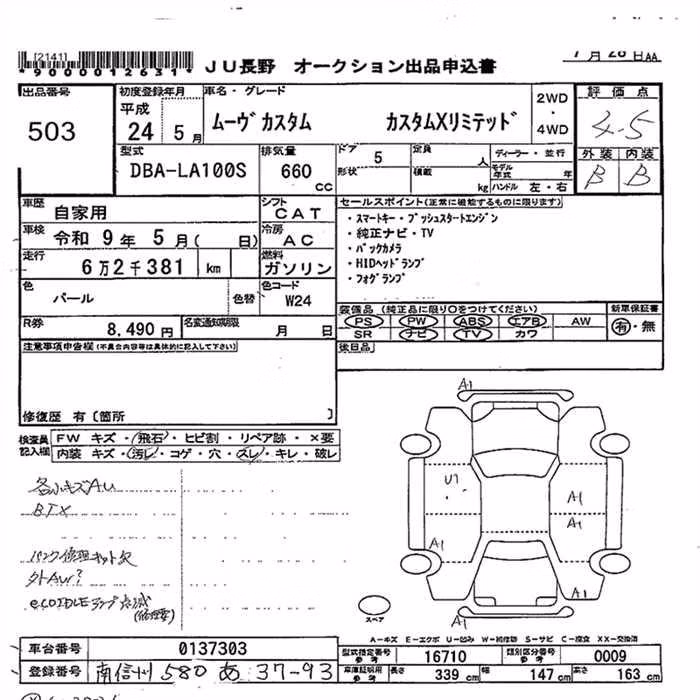 [2141]
*9000012631*
JU長野 オークション出品申込書
7月28日AA
出品番号
503
初度登録年月
平成
24 5月
車名・グレード
ムーヴカスタム カスタムXリミテッド
2WD
・
4WD
評価点
4.5
外装 内装
B B
型式
DBA-LA100S
排気量
660
CC
ドア
5
形状
定員
人
積載
kg
ディーラー・並行
モデル
年式 年
ハンドル 左・右
車歴
自家用
シフト
CAT
車検
令和 9年 5月( 日)
冷房
AC
走行
6万2千381 km
燃料
ガソリン
色
パール
色替
色コード
W24
R券
8,490円
名変通知期限
月 日
セールスポイント(正常に機能するものに限ります)
・スマートキー・プッシュスタートエンジン
・純正ナビ・TV
・バックカメラ
・HIDヘッドランプ
・フォグランプ
装備品(純正品に限り○をつけてください)
PS PW ABS エアB AW
SR ナビ TV カワ
新車保証書
有・無
後日品
注意事項申告欄(不具合内容等は具体的に記入して下さい)
修復歴 有〔箇所 〕
検査員
記入欄
FW キズ・飛石・ヒビ割・リペア跡・×要
内装 キズ・汚レ・コゲ・穴・スレ・キレ・破レ
各小キズAU
BTX
パンク修理キット欠
外AW?
eCOIDLEランプ点滅
(修理要)
A1
U1
A1
A1
A1
A1
A1
スペア
A-キズ E-エクボ U-凹み W-補修跡 S-サビ C-腐食 XX-交換済
車台番号
0137303
登録番号
南信州 580 あ 37-93
型式指定番号
参考
16710
類別区分番号
参考
0009
車庫証明用
参考
長さ
339 cm
幅
147 cm
高さ
163 cm